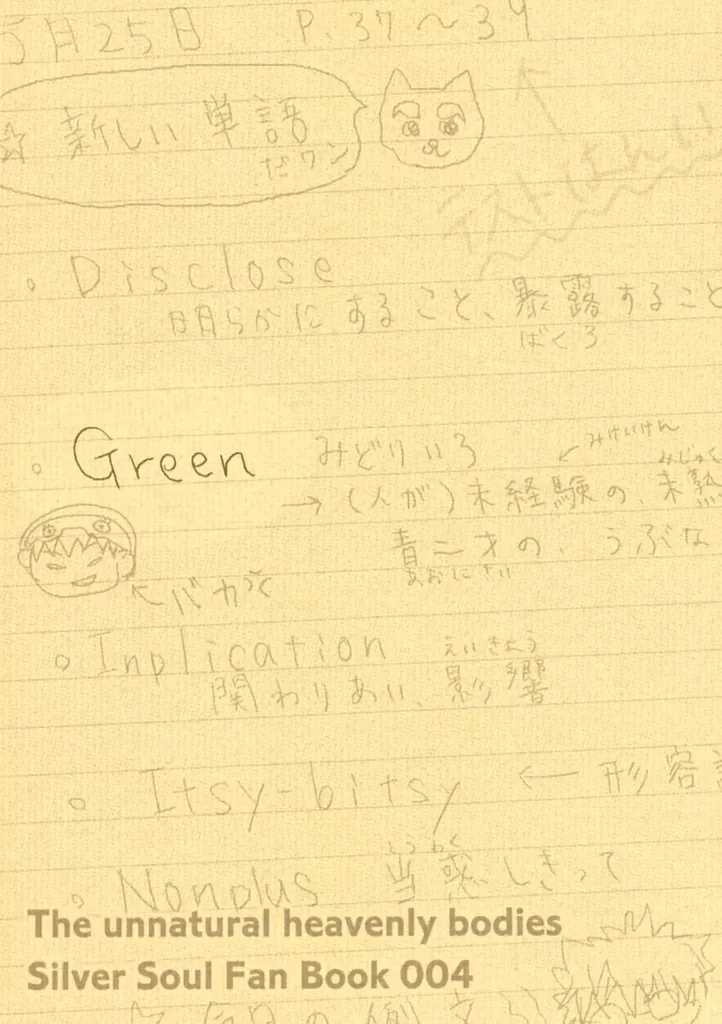 5月25日 P.37〜39
☆新しい単語
だワン
テストはんい
Disclose
明らかにすること、暴露すること
ばくろ
Green みどりいろ
みけいけん
みじゅく
→(人が)未経験の、未熟
青二才の、うぶな
あおにさい
←バカ
Inplication
えいきょう
関わりあい、影響
Itsy-bitsy ← 形容
とうわく
Nonplus 当惑しきって
The unnatural heavenly bodies
Silver Soul Fan Book 004
☆今日の例文